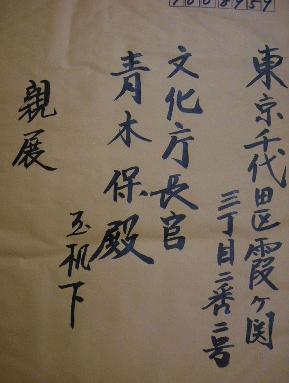 1008959
東京千代田区霞ヶ関
三丁目二番二号
文化庁長官
青木保殿
玉机下
親展